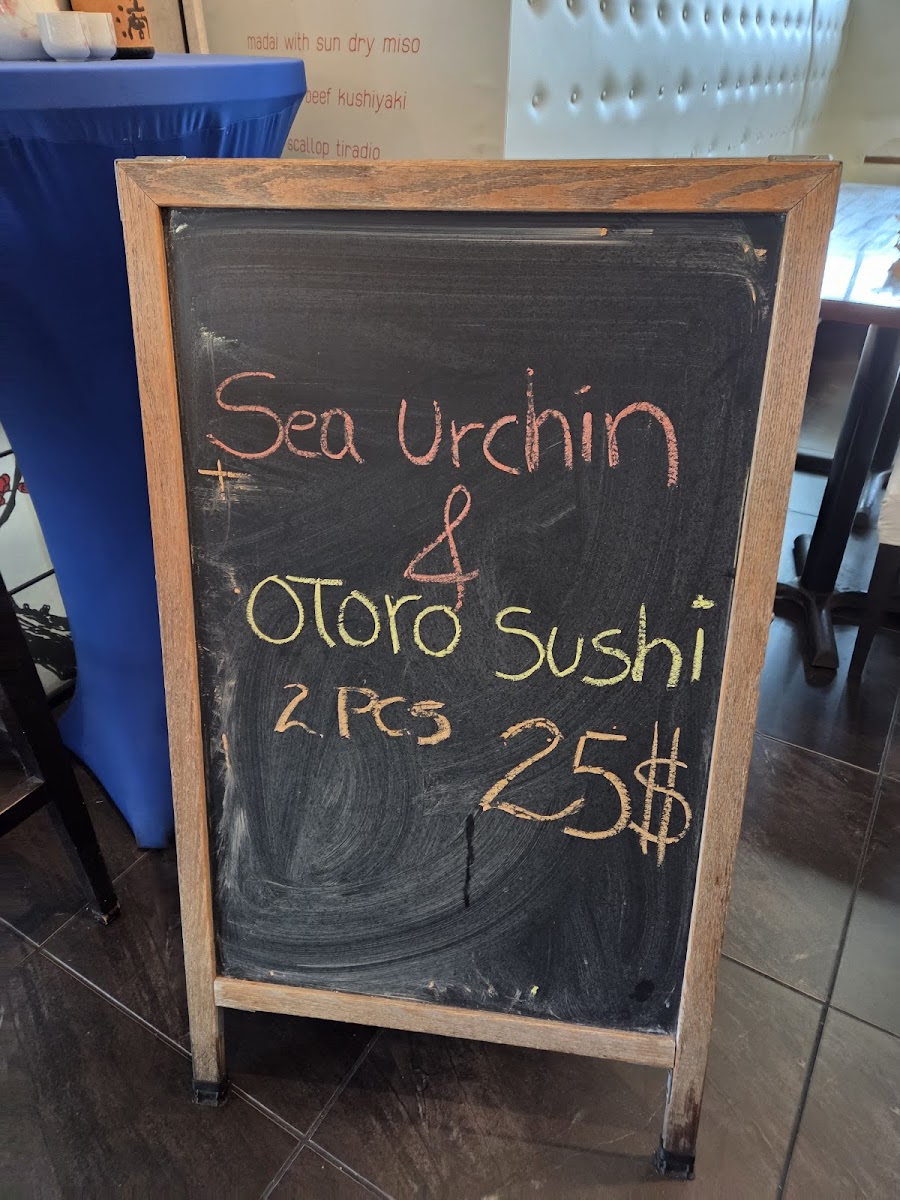 madai with sun dry miso
beef kushiyaki
scallop tiradio
Sea Urchin
&
OToro Sushi
2 Pcs
25$